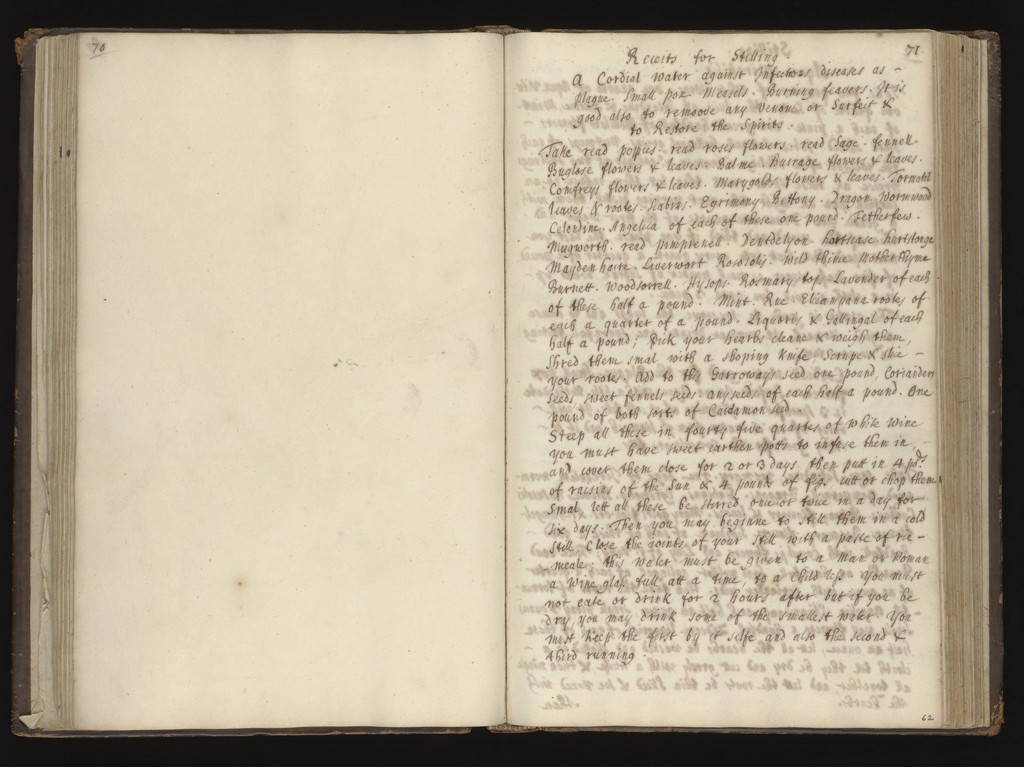 70
71
Receits for Stilling.
A Cordial water against Infectous diseases as -
plague. Small pox. Measels. Burning feavers. It is
good also to remoove any venom or Surfeit &
to Restore the Spirits.
Take read popies. read roses flowers. read Sage. fennell.
Buglose flowers & leaves. Balme. Burrage flowers & leaves.
Comfreys flowers & leaves. Marygolds flowers & leaves. Tormotil
leaves & rootes. Egrimony. Bettony. Dragon. Wormwood
Celendine. Angelica of each of these one pound. Fetherfew.
Mugworth. reed pimprenell. Dentdelyon hartsease hartstonge
Maydenhaire. Liverwort Rososolis. wild thime Mother thyme
Burnett. Woodsorrell. Hysops. Rosmary top. Lavender of each
of these half a pound. Mint. Rue. Elicampana rootes of
each a quarter of a pound. Liquoris & Gallingal of each
half a pound; Pick your hearbs cleane & weigh them,
Shred them smal with a choping knife. Scrape & slic -
your rootes. Add to this Carroways seed one pound, Coriander
seeds, sweet fennels seeds. anyseed, of each half a pound. One
pound of both sorts of Cardamon seed.
Steep all these in fourty five quartes of white wine
you must have sweet earthen potts to infuse them in
and cover them close for 2 or 3 days. then putt in 4 pds
of raisins of the Sun & 4 pounds of figs. cutt or chop them
Smal, lett all these be stirred one or twice in a day for
six days. Then you may beginne to still them in a cold
still. Close the joints of your still with a paste of rie -
meale; this water must be given to a Man or Woman
a wine glass full att a time, to a Child less. You must
not eate or drink for 2 hours after but if you be
dry you may drink some of the smallest water. You
must keep the first by it selfe and also the second &
third running.
62